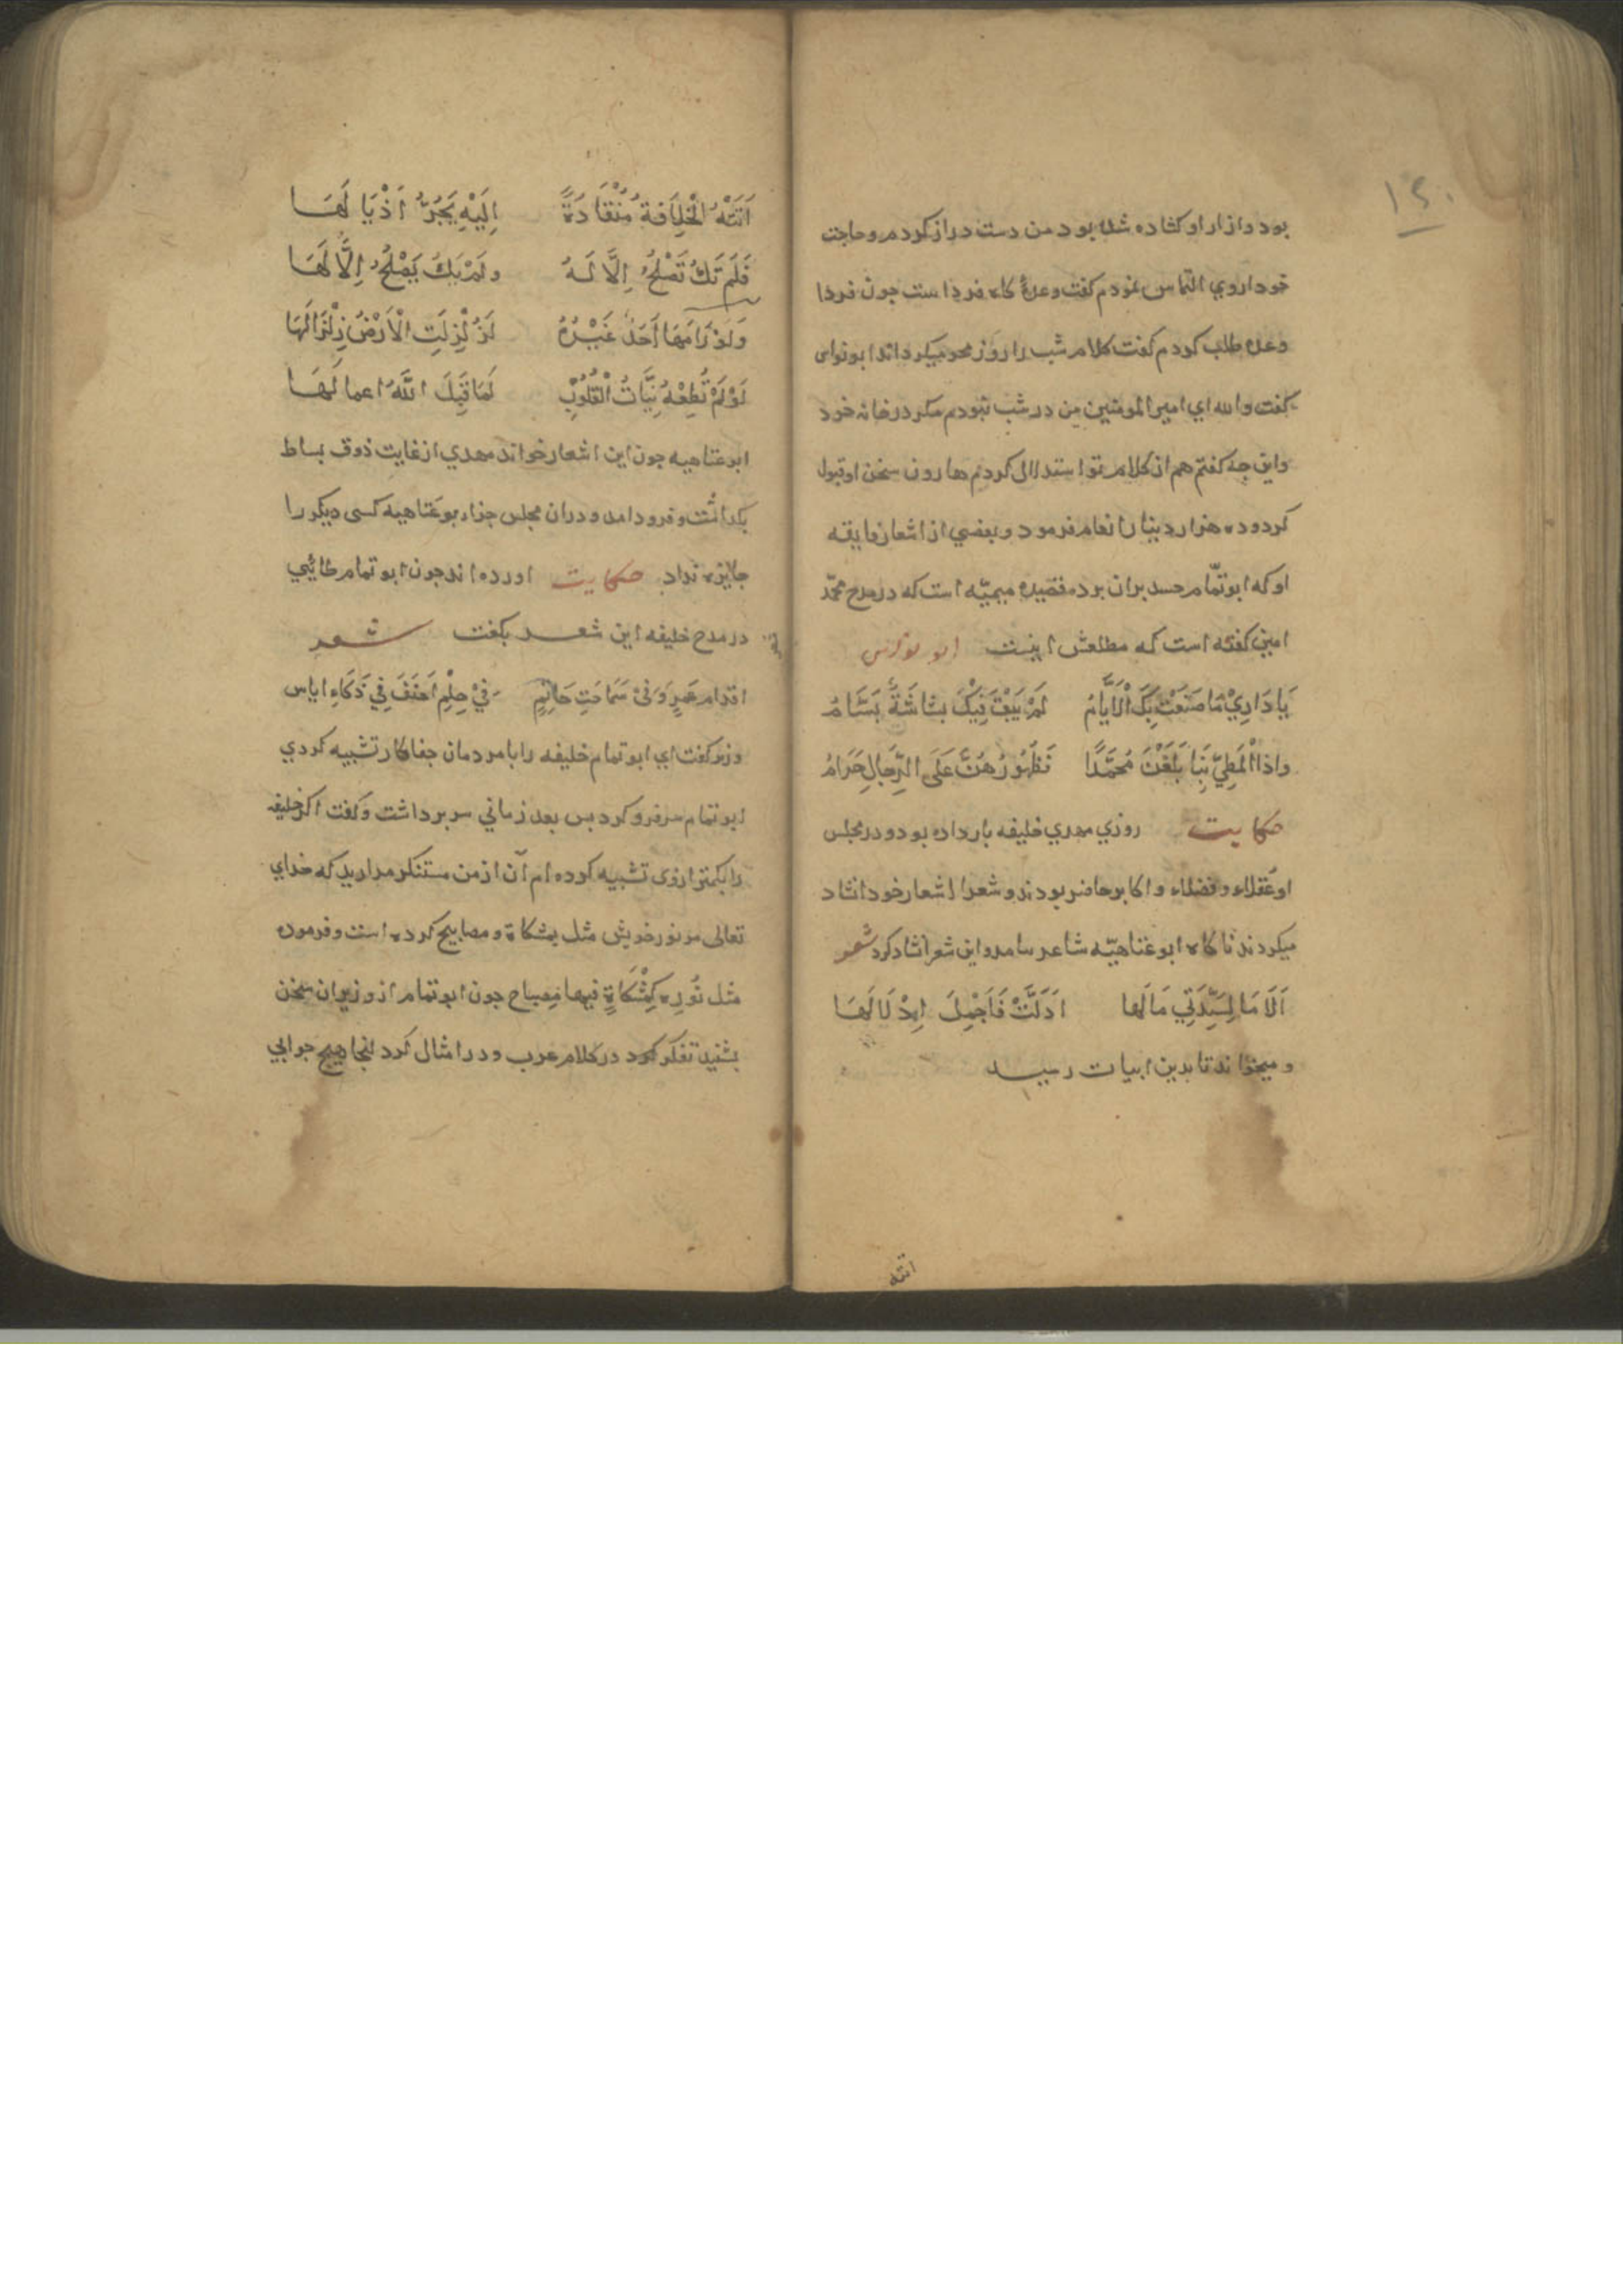 ۱۲۰
بود وازار او کشاده شده بود من دست دراز کردم وحاجت
خود ازوي التماس نمودم کفت وعدهٔ کاه فردا است جون فردا
وعده طلب کردم کفت کلام شب را روز محو میکرداند ابو نواس
کفت والله اي امیر المومنین من در شب نبودم مکر در خانه خود
واین جه کفتم هم از کلام تو استدلالی کردم هارون سخن او قبول
کرد وده هزار دینار انعام فرمود وبعضي از اشعار فایقه
او که ابو تمّام حسد بران برده قصیده میمیّه است که در مدح محمّد
امین کفته است که مطلعش اینست ابو نواس
یَا دَارِيْ مَا صَنَعَتْ بِکَ الْاَیَّامُ لَمْ یَبْقَ فِیْکَ بَشَاشَةٌ بَسَّامُ
واذا الْمَطِيّ بِنَا بَلَغْنَ مُحَمَّدًا فَظُهُورُهُنَّ عَلَی الرِّجَالِ حَرَامُ
حکایت روزي مهدي خلیفه بار داده بود ودر مجلس
او عقلاء وفضلاء واکابر حاضر بودند وشعرا اشعار خود انشاد
میکردند ناکاه ابو عتاهیّه شاعر بیامد واین شعر انشاد کرد شعر
اَلَا مَا لِسَیِّدَتِي مَا لَهَا اَدَلَّتْ فَاَجْمِلَ اِدْلَالَهَا
ومیخواند تا بدین ابیات رسید
اتته
اَتَتْهُ الْخِلَافَةُ مُنْقَادَةً اِلَیْهِ یَجُرُّ اَذْیَا لَهَا
فَلَمْ تَکُ تَصْلُحُ اِلَّا لَهُ ولَمْ یَکُ یَصْلُحُ اِلَّا لَهَا
وَلَوْ رَامَهَا اَحَدٌ غَیْرُهُ لَزُ لْزِلَتِ الْاَرْضُ زِلْزَالَهَا
لَوْ لَمْ تُطِعْهُ نِیَّاتُ الْقُلُوْبِ لَمَا قَبِلَ اللَّهُ اعما لَهَا
ابو عتاهیه جون این اشعار خواند مهدي از غایت ذوق بساط
بکداشت وفرود امد ودران مجلس جزاء بو عتاهیه کسی دیکر را
جایزه نداد حکایت اورده اند جون ابو تمام طائیي
در مدح خلیفه این شعر بکفت شعر
اقدام عمرٍ وَفی سَمَاحَتِ حَاتِمٍ فِيْ حِلْمِ اَحْنَفَ فِي ذَکَاءِ ایاس
وزیر کفت اي ابو تمام خلیفه را با مردمان جفاکار تشبیه کردي
ابو تمام سر فرو کرد بس بعد زماني سر برداشت وکفت اکر خلیفه
را بکمتر ازوی تشبیه کرده ام آن از من مستنکر مدارید که خداي
تعالی مر نور خویش مثل بمشکاة ومصابیح کرده است وفرموده
مثل نُوره کَمِشْکَاةٍ فیها مِصباح جون ابو تمام از وزیران سخن
بشنید تفکر کرد در کلام عرب ودر امثال کرد انجا هیچ جوابي